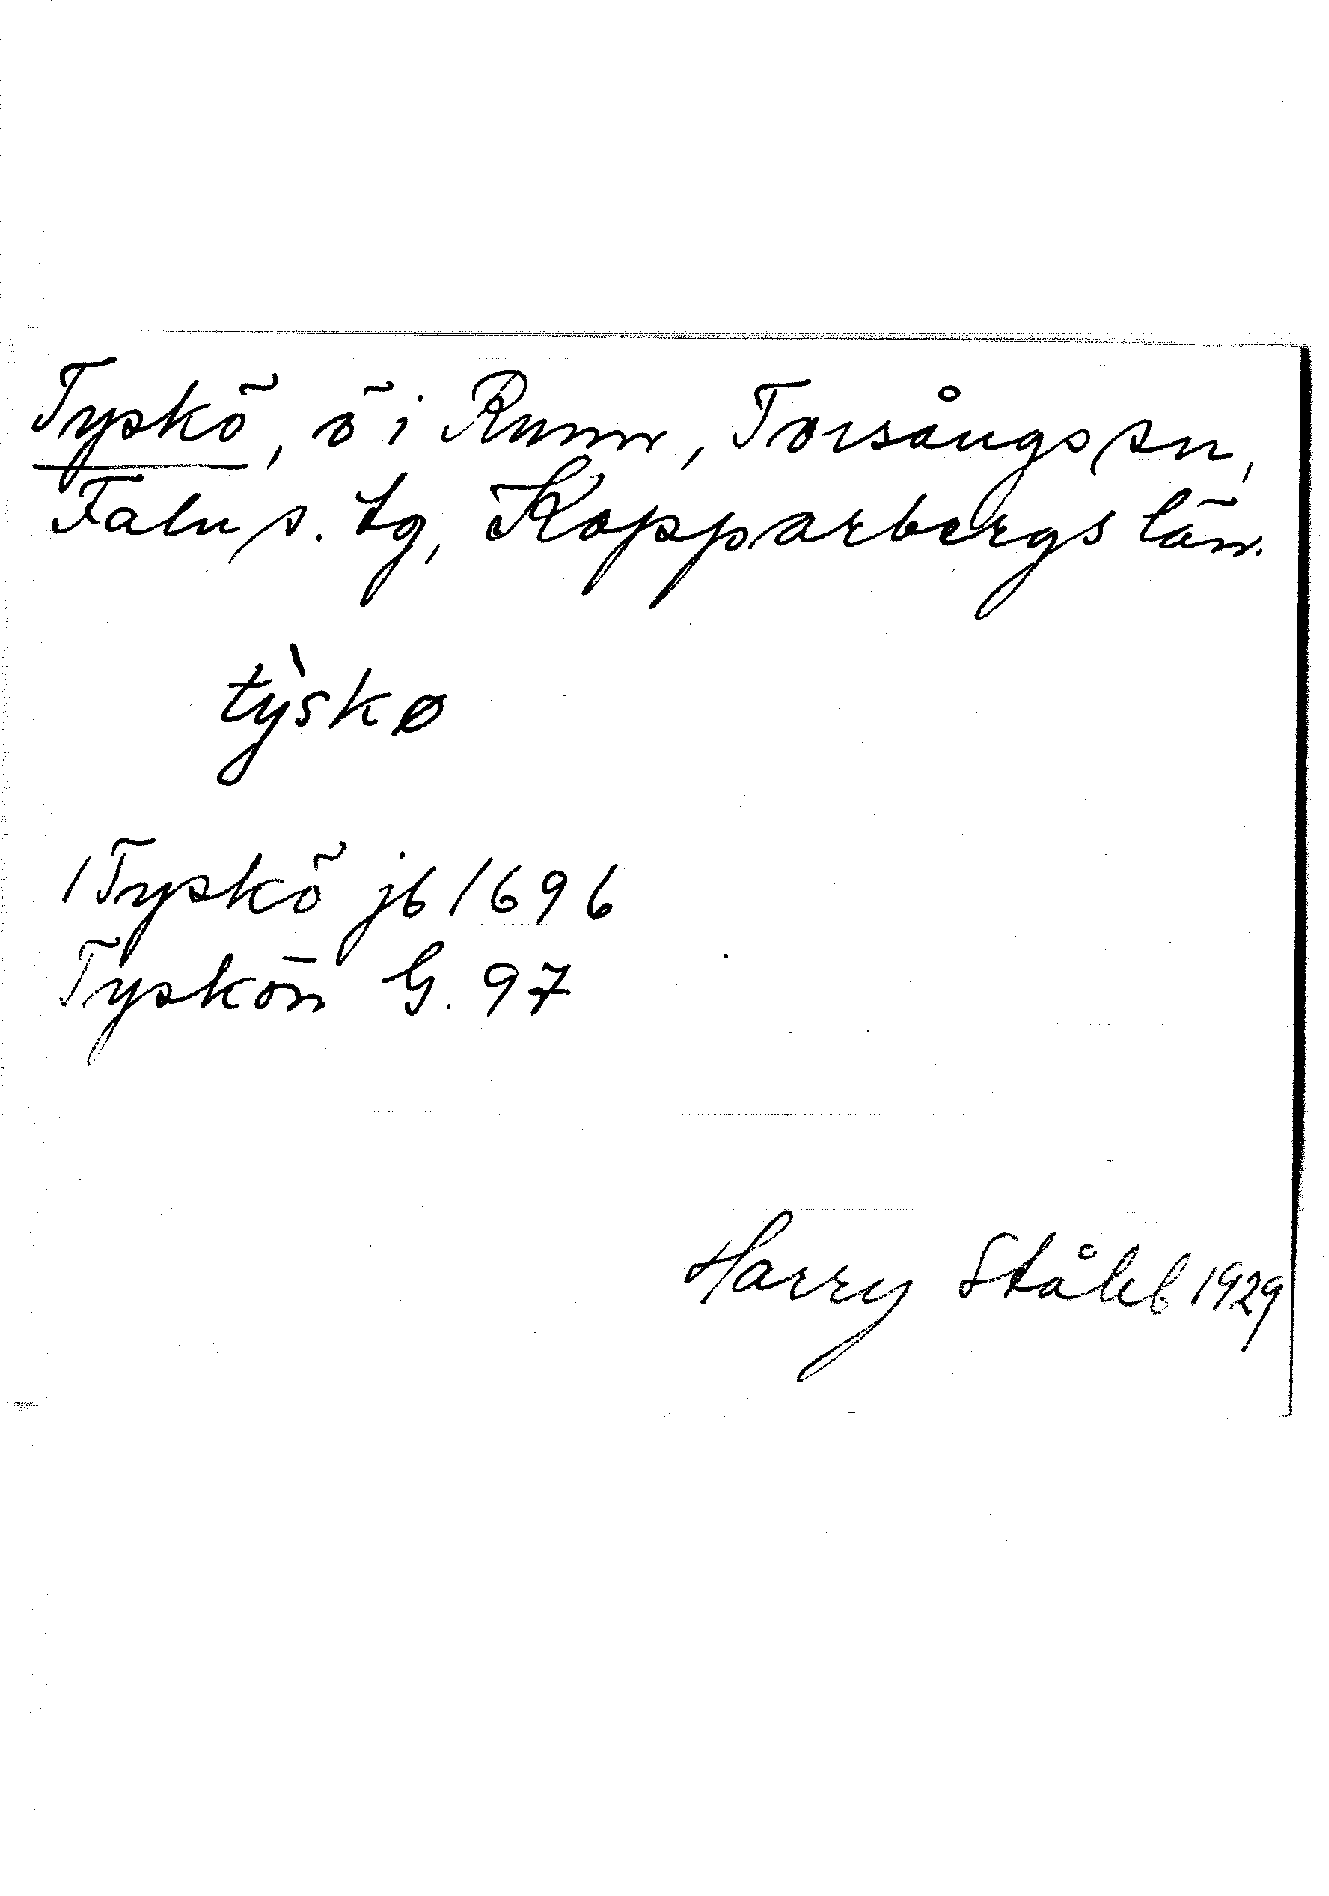 Tyskö, ö i Runn, Torsångs sn,
Falu s. tg, Kopparbergs län.
tỳskø
1 Tyskö jb 1696
Tyskön G. 97
Harry Ståhl 1929